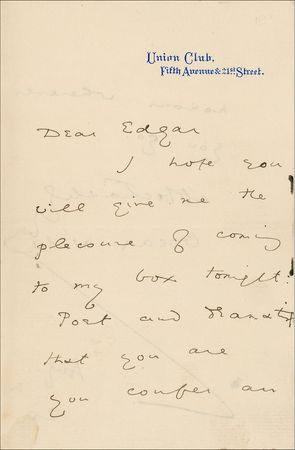 Union Club,
Fifth Avenue & 21st Street.
Dear Edgar
I hope you
will give me the
pleasure of coming
to my box tonight.
Poet and
that you are
you confer an